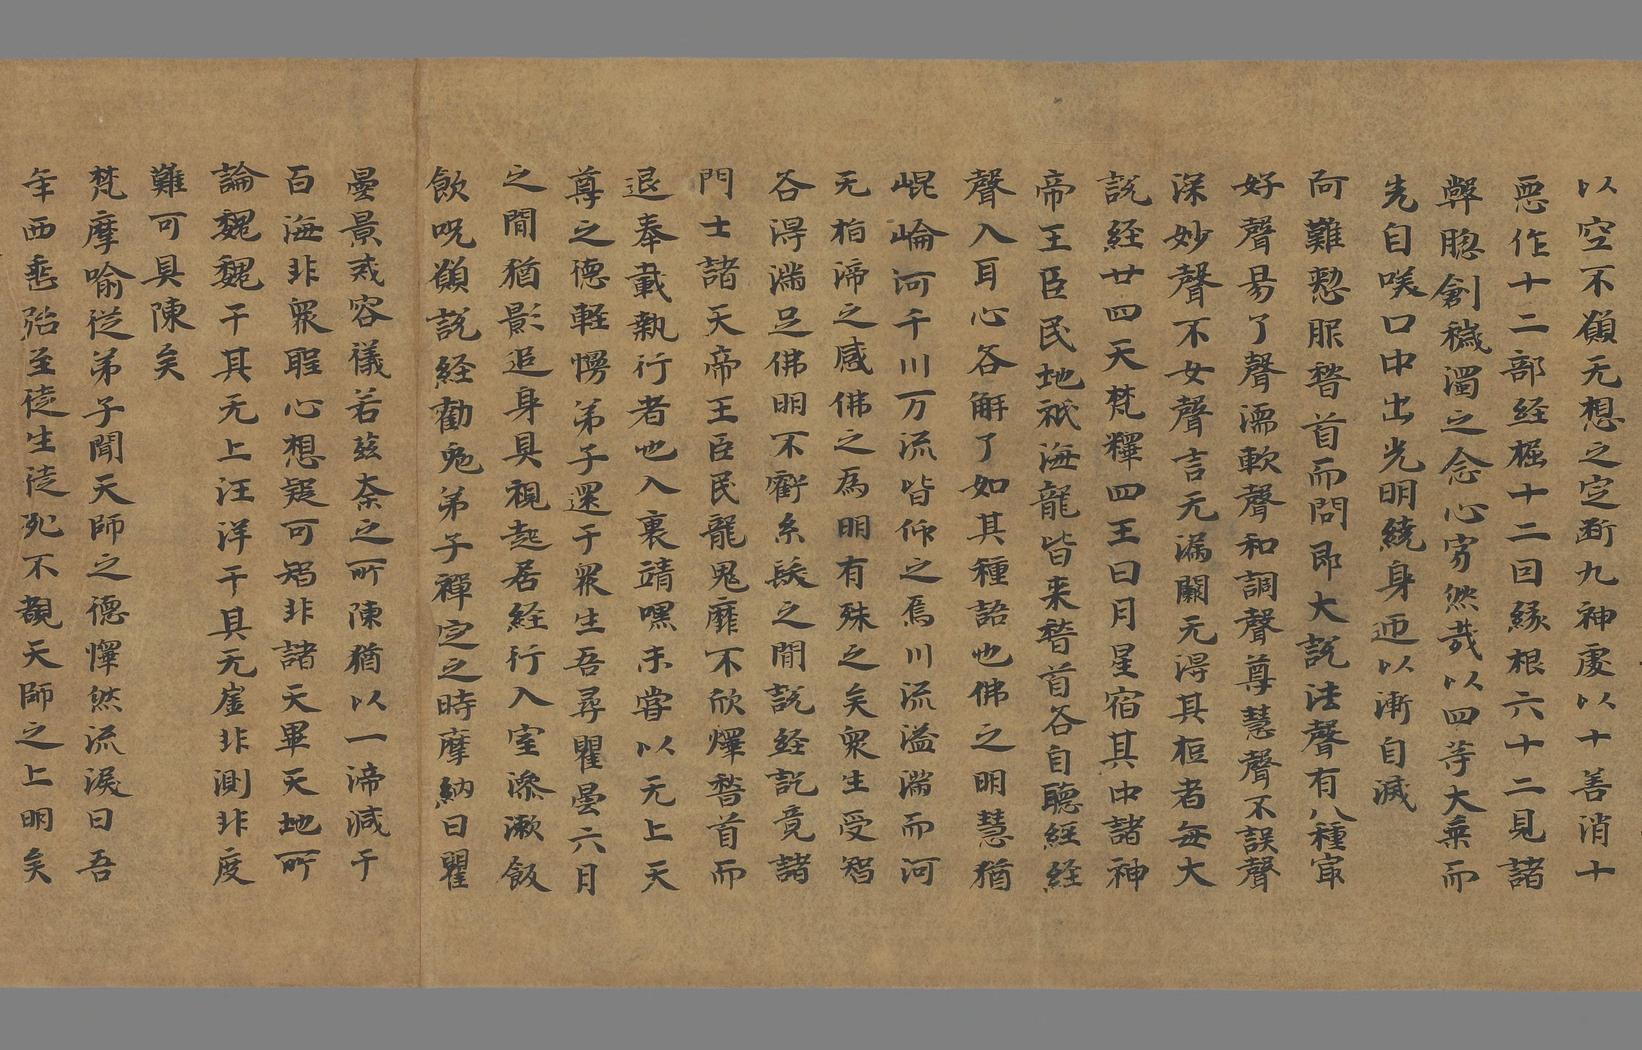 以空不願无想之定断九神處以十善消十
惡作十二部経拯十二因緣根六十二見諸
弊勝創穢濁之念心寂然哉以四等大乘而
先自咲口中出光明繞身迊以漸自滅
阿難懃服稽首而問即大說法聲有八種冣
好聲易了聲濡軟聲和調聲尊慧聲不誤聲
深妙聲不女聲言无漏闕无得其桓者每大
說経廿四天梵釋四王日月星宿其中諸神
帝王臣民地祇海龍皆来稽首各自聽経経
聲入耳心各解了如其種語也佛之明慧猶
崐崘河千川万流皆仰之焉川流溢满而河
无栢渧之感佛之為明有殊之矣衆生受智
各得满足佛明不虧糸髮之間說経訖竟諸
門士諸天帝王臣民龍鬼靡不欣懌稽首而
退奉載執行者也入裏靖嘿未甞以无上天
尊之德軽慢弟子還于衆生吾尋瞿曇六月
之間猶影追身具視起居経行入室澡漱飯
飲呪願說経勸勉弟子禪定之時摩納曰瞿
曇景式容儀若玆太之所陳猶以一渧減于
百海非衆聖心想疑可智非諸天畢天地所
論巍巍干其无上汪洋干具无崖非測非度
難可具陳矣
梵摩喻從弟子聞天師之德懌然流淚曰吾
年西垂殆至徒生徒死不覩天師之上明矣